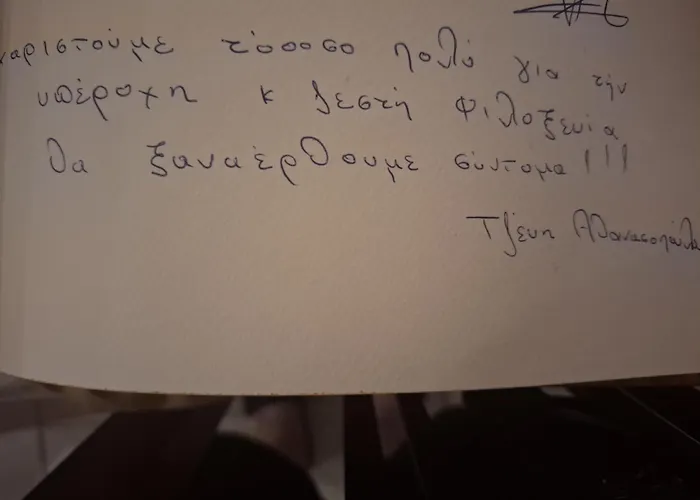 χαριστούμε τόοοσο πολύ για την
υπέροχη κ ζεστή φιλοξενία
θα ξαναέρθουμε σύντομα!!!
Τζένη Αθανασοπούλο